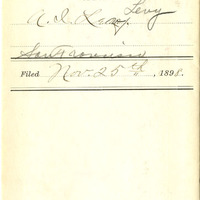 Levy
A. I. Levy
San Francisco
Filed Nov. 25th, 1898.